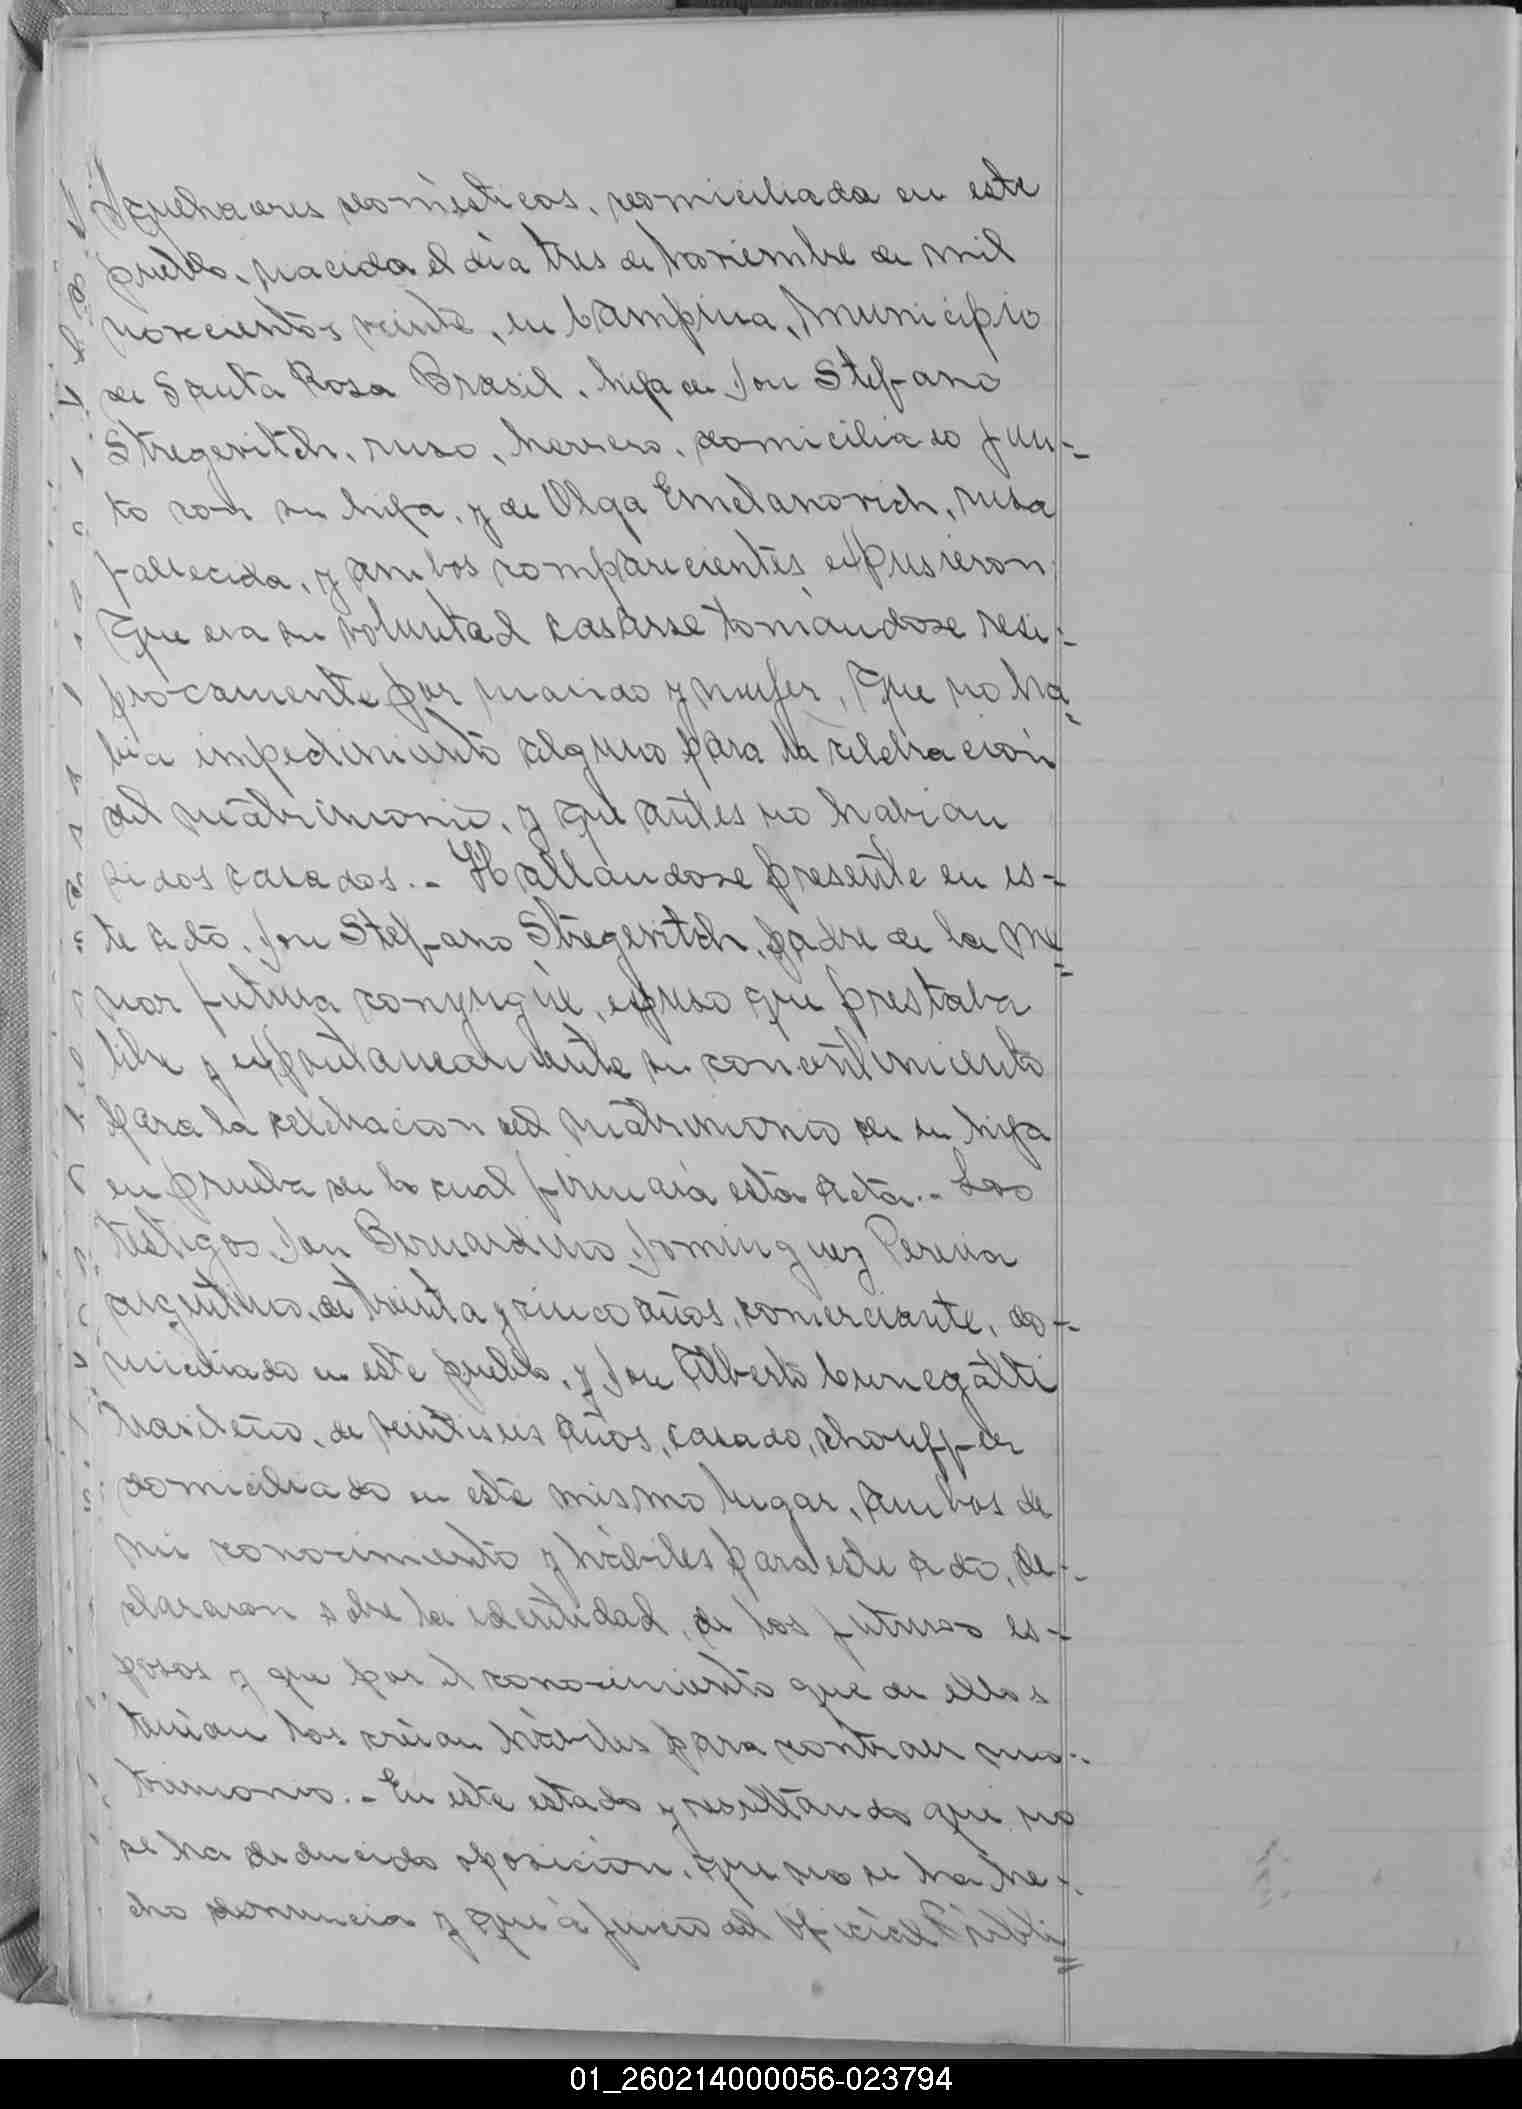 Quehaceres domésticos, domiciliada en este
pueblo, nacida el día tres de Noviembre de mil
novecientos veinte, en Campina, Municipio
de Santa Rosa Brasil, hija de Don Stefano
Stregevitch, ruso, herrero, domiciliado jun-
to con su hija, y de Olga Emelanovich, rusa
fallecida, y ambos comparecientes expusieron:
Que era su voluntad casarse tomándose reci-
procamente por marido y mujer, Que no ha
bia impedimento alguno para la celebración
del matrimonio, y que antes no habian
sidos casados.- Hallandose presente en es-
te acto, Don Stefano Stregevitch, padre de la me
nor futura conyugüe, expuso que prestaba
libre y expontaneamente su consentimiento
para la celebracion del matrimonio de su hija
en prueba de lo cual firmará esta acta.- Los
testigos, Don Bernardino Dominguez Pereira
argentino, de treinta y cinco años, comerciante, do-
miciliado en este pueblo, y Don Alberto Cunegatti
brasileño, de veintiseis años, casado, chouffer
domiciliado en este mismo lugar, ambos de
mi conocimiento y hábiles para este acto, de-
clararon sobre la identidad, de los futuros es-
posos y que por el conocimiento que de ellos
tenian los creian hábiles para contraer ma-
trimonio.- En este estado y resultando que no
se ha deducido oposición, que no se ha he-
cho denuncia y que á juicio del Oficial Públi
01_260214000056-023794